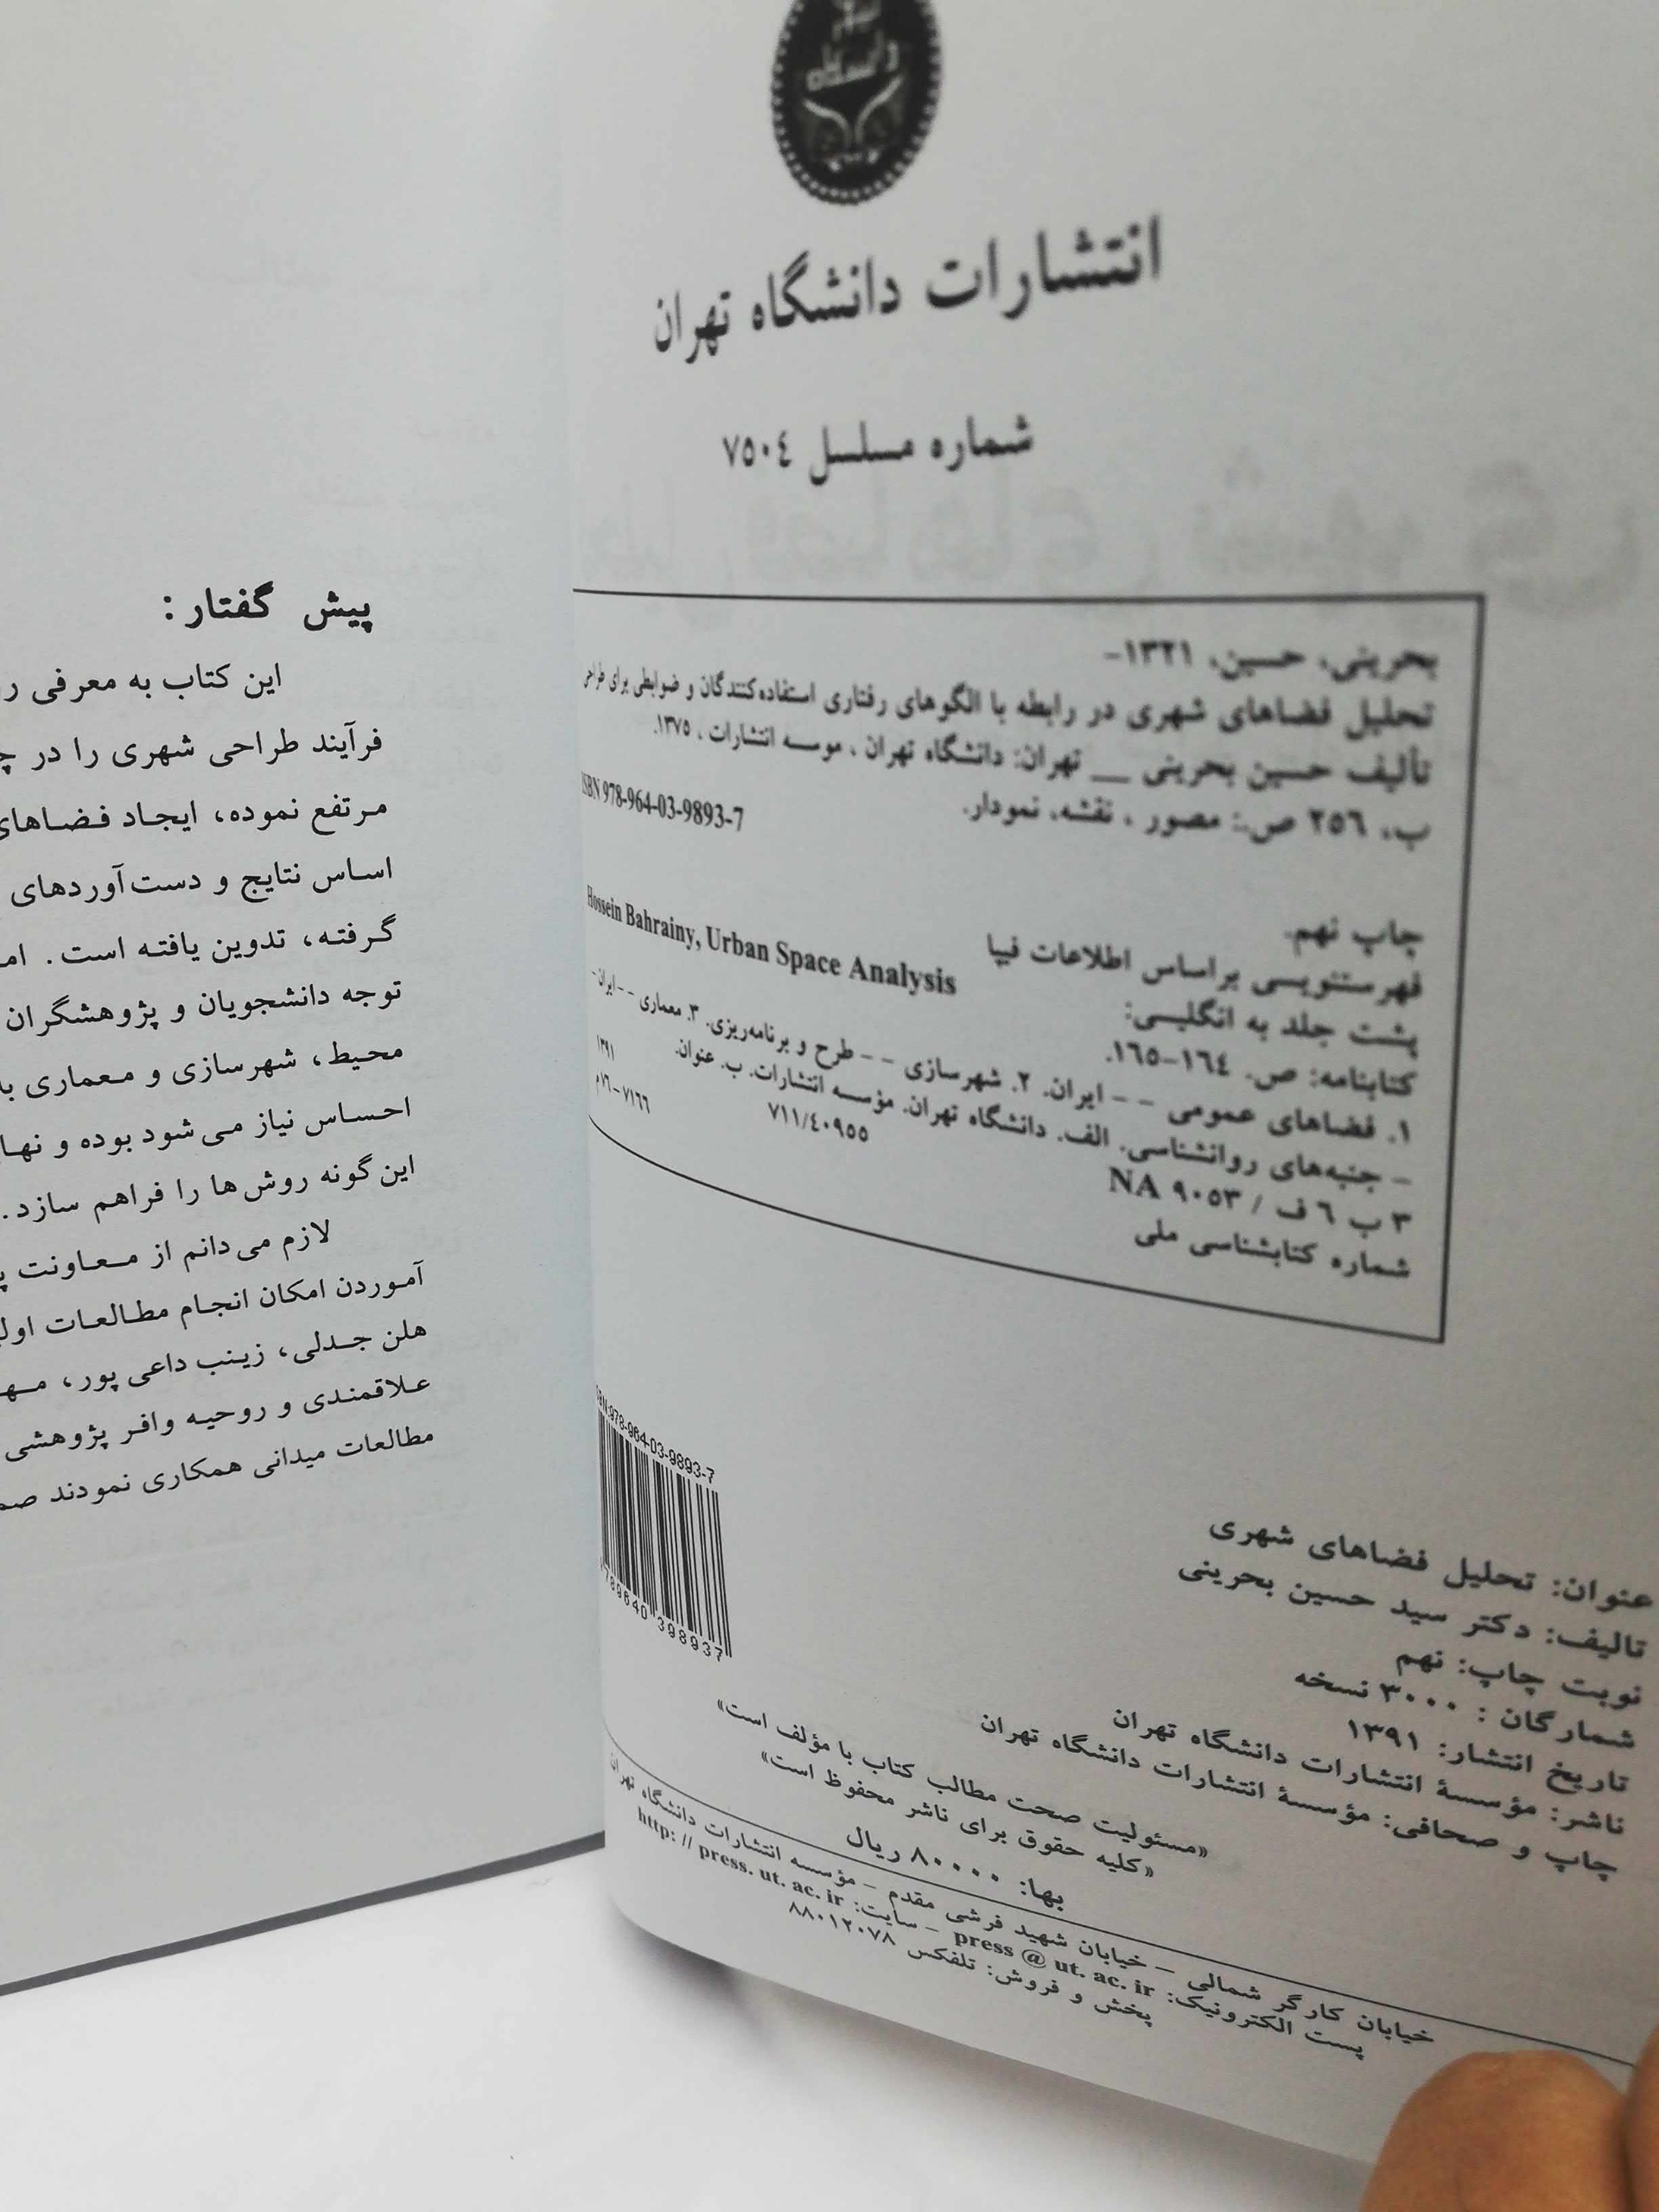 انتشارات دانشگاه تهران
شماره مسلسل ٧٥٠٤
بحرینی، حسین، ۱۳۲۱-
تحلیل فضاهای شهری در رابطه با الگوهای رفتاری استفاده‌کنندگان و ضوابطی برای طراحی
تألیف حسین بحرینی __ تهران: دانشگاه تهران، موسسه انتشارات، ۱۳۷۵.
ب، ٢٥٦ ص.: مصور، نقشه، نمودار.
ISBN 978-964-03-9893-7
چاپ نهم.
فهرستنویسی براساس اطلاعات فیپا
پشت جلد به انگلیسی: Hossein Bahrainy, Urban Space Analysis
کتابنامه: ص. ١٦٤-١٦٥.
۱. فضاهای عمومی -- ایران. ۲. شهرسازی -- طرح و برنامه‌ریزی. ۳. معماری -- ایران-
- جنبه‌های روانشناسی. الف. دانشگاه تهران. مؤسسه انتشارات. ب. عنوان.
۳ ب ٦ ف / ٩٠٥٣ NA ٧١١/٤٠٩٥٥ ۱۳۹۱
شماره کتابشناسی ملی ٧١٦٦-٧٦م
ISBN:978-964-03-9893-7
789640 398937
عنوان: تحلیل فضاهای شهری
تالیف: دکتر سید حسین بحرینی
نوبت چاپ: نهم
شمارگان: ۳۰۰۰ نسخه
تاریخ انتشار: ۱۳۹۱
ناشر: مؤسسۀ انتشارات دانشگاه تهران
چاپ و صحافی: مؤسسۀ انتشارات دانشگاه تهران
«مسئولیت صحت مطالب کتاب با مؤلف است»
«کلیه حقوق برای ناشر محفوظ است»
بها: ۸۰۰۰۰ ریال
خیابان کارگر شمالی - خیابان شهید فرشی مقدم - مؤسسه انتشارات دانشگاه تهران
پست الکترونیک: press @ ut. ac. ir - سایت: http: // press. ut. ac. ir
پخش و فروش: تلفکس ۸۸۰۱۲۰۷۸
پیش گفتار:
این کتاب به معرفی
فرآیند طراحی شهری را در
مرتفع نموده، ایجاد فضاهای
اساس نتایج و دست‌آوردهای
گرفته، تدوین یافته است.
توجه دانشجویان و پژوهشگران
محیط، شهرسازی و معماری
احساس نیاز می‌شود بوده و
این‌گونه روش‌ها را فراهم سازد.
لازم می‌دانم از معاونت
آموردن امکان انجام مطالعات
هلن جدلی، زینب داعی پور،
علاقمندی و روحیه وافر پژوهشی
مطالعات میدانی همکاری نمودند